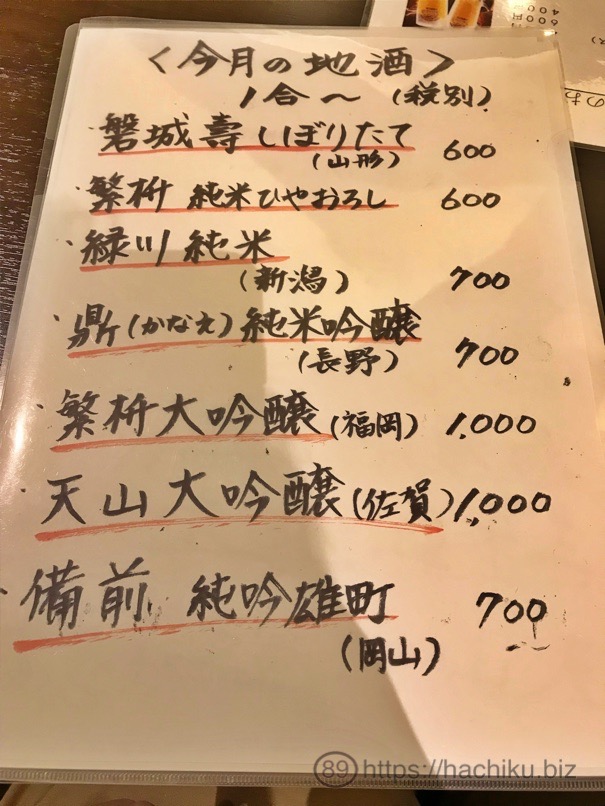 〈今月の地酒〉
1合〜(税別)
磐城壽しぼりたて
(山形) 600
繁桝 純米ひやおろし 600
・緑川純米
(新潟) 700
・鼎(かなえ)純米吟醸
(長野) 700
・繁桝大吟醸(福岡) 1,000
・天山大吟醸(佐賀) 1,000
・備前 純吟雄町 700
(岡山)
600円
400
のお
89 https://hachiku.biz